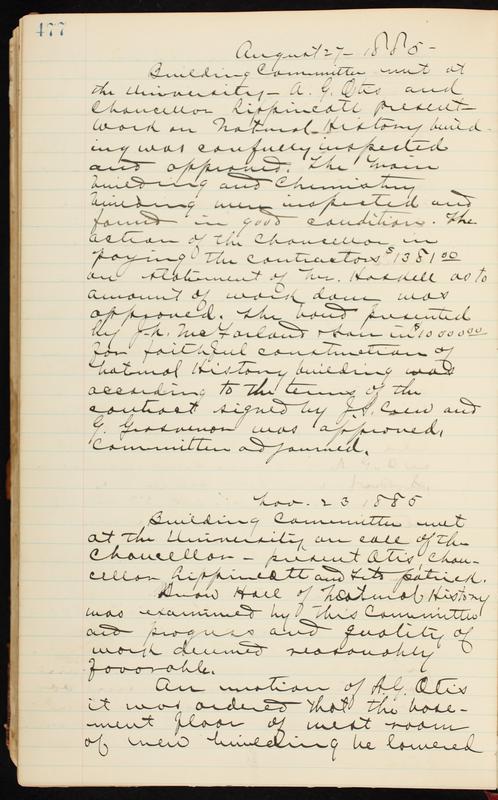 477
August 27 - 1885 -
Building Committee met at
the University - A. G. Otis and
Chancellor Lippincott present -
Work on Natural History build-
ing was carefully inspected
and approved. The main
building and Chemistry
building were inspected and
found in good condition. The
action of the Chancellor in
paying the contractors $1381 00
on statement of Mr. Haskell as to
amount of work done was
approved. The bond presented
by J. R. McFarland & Son in $10000 00
for faithful construction of
Natural History building was
according to the terms of the
contract signed by J. S. Crew and
G. Grosvenor was approved.
Committee adjourned.
Nov. 23 1885
Building Committee met
at the University on call of the
Chancellor - present Otis, Chan-
cellor Lippincott and Fitzpatrick.
Snow Hall of Natural History
was examined by this Committee
and progress and quality of
work deemed reasonably
favorable.
On motion of A. G. Otis
it was ordered that the base-
ment floor of west room
of new building be lowered